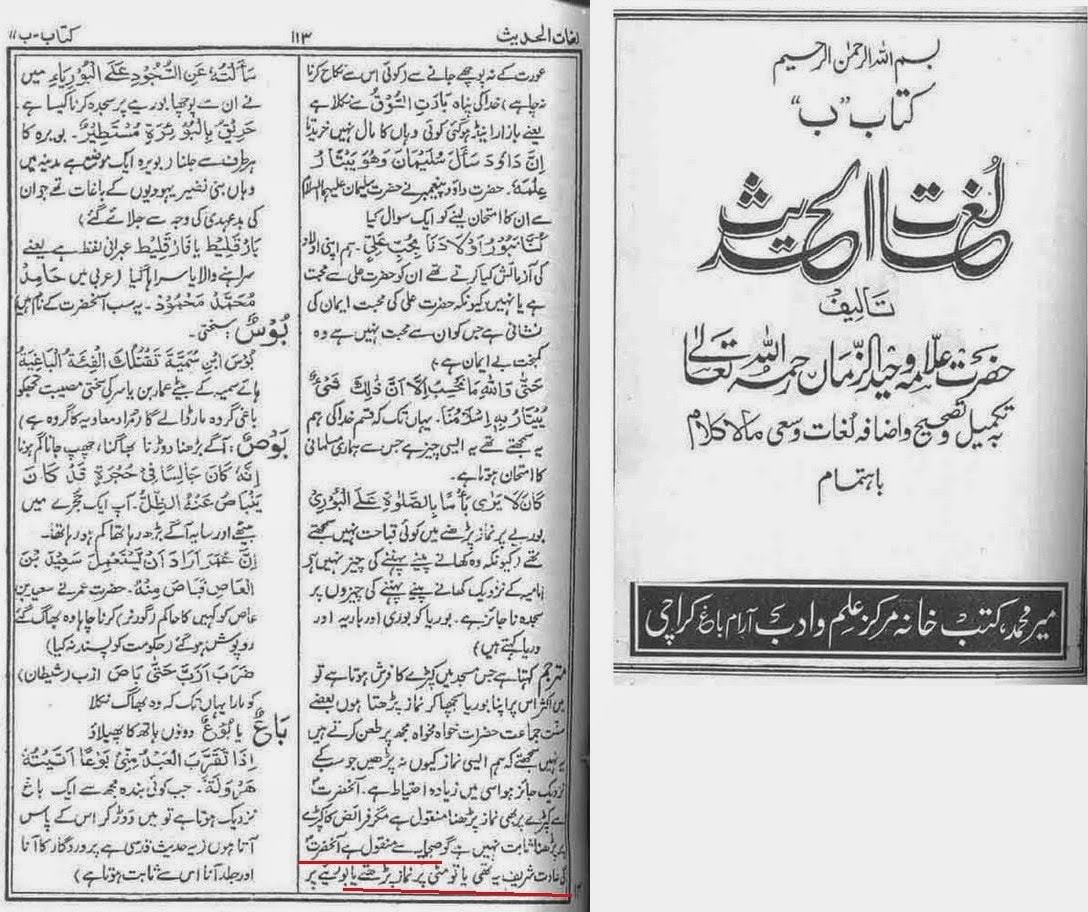 بسم اللہ الرحمٰن الرحیم
کتاب ”ب“
لغات الحدیث
تالیف
حضرت علامہ وحید الزمان رحمہ اللہ تعالیٰ
بہ تکمیل و تصحیح و اضافہ لغات وسعی مالا کلام
باہتمام
میر محمد، کتب خانہ مرکز علم وادب آرام باغ کراچی
لغات الحدیث
۱۱۳
کتاب۔ب
عورت کے نہ پوچھے جانے سے (کوئی اس سے نکاح کرنا
نہ چاہے) خدا کی پناہ بَارَتِ السُّوْقُ سے نکلا ہے
یعنے بازار اینڈ ہوگئی کوئی وہاں کا مال نہیں خریدتا
اِنَّ دَاوٗدَ سَأَلَ سُلَیْمَانَ وَھُوَ یَبْتَارُ
عِلْمَہٗ۔ حضرت داؤد پیغمبر نے حضرت سلیمان علیہما السلام
سے ان کا امتحان لینے کو ایک سوال کیا
کُنَّا نَبُوْرُ اَوْلَادَنَا بِحُبِّ عَلِیٍّ۔ ہم اپنی اولاد
کی آزمائش کیا کرتے تھے ان کو حضرت علی سے محبت
ہے یا نہیں کیونکہ حضرت علی کی محبت ایمان کی
نشانی ہے جس کو ان سے محبت نہیں ہے وہ
کمبخت بے ایمان ہے)
حَتّٰی وَاللہِ مَا نَحْسِبُ اِلَّا اَنَّ ذٰلِکَ شَیْءٌ
یُبْتَارُ بِہٖ اِسْلَامُنَا۔ یہاں تک کہ قسم خدا کی ہم
یہ سمجھتے تھے یہ ایسی چیز ہے جس سے ہماری مسلمانی
کا امتحان ہوتا ہے۔
کَانَ لَا یَرٰی بَأْسًا بِالصَّلٰوۃِ عَلَی الْبُوْرِیّ
بوریے پر نماز پڑھنے میں کوئی قباحت نہیں سمجھتے
تھے (کیونکہ وہ کھانے پینے پہننے کی چیز نہیں ہے
امامیہ کے نزدیک کھانے پینے پہننے کی چیزوں پر
سجدہ ناجائز ہے۔ بوریا کو بوری اور باریہ اور
وریا کہتے ہیں)
مترجم کہتا ہے جس مسجد میں کپڑے کا فرش ہوتا ہے تو
میں اکثر اس پر اپنا بوریا بچھا کر نماز پڑھتا ہوں بعضے
سنت جماعت حضرات خواہ مخواہ مجھ پر طعن کرتے ہیں
یہ نہیں سمجھتے کہ ہم ایسی نماز کیوں نہ پڑھیں جو سب کے
نزدیک جائز ہو اسی میں زیادہ احتیاط ہے۔ آنحضرتؐ
سے کپڑے پر بھی نماز پڑھنا منقول ہے مگر فرائض کا کپڑے
پر پڑھنا ثابت نہیں ہے گو صحابہ سے منقول ہے آنحضرتؐ
کی عادت شریف یہ تھی یا تو مٹی پر نماز پڑھتے یا بوریے پر
سَأَلْتُہٗ عَنِ السُّجُوْدِ عَلَی الْبُوْرِیَاءِ میں
نے ان سے پوچھا بوریے پر سجدہ کرنا کیسا ہے
حَرِیْقٌ بِالْبُوَیْرَۃِ مُسْتَطِیْرٌ۔ بویرہ کا
ہر طرف سے جلنا (بویرہ ایک موضع ہے مدینہ میں
وہاں بنی نضیر یہودیوں کے باغات تھے جو ان
کی بدعہدی کی وجہ سے جلائے گئے)
بَارْقَلِیْط یا فَارْقَلِیْط عبرانی لفظ ہے یعنے
سراہنے والا یا سراہا گیا (عربی میں حَامِدٌ
مُحَمَّدٌ مَحْمُوْدٌ۔ یہ سب آنحضرت کے نام ہیں)
بُوْسٌ سختی۔
بُوْسَ ابْنِ سُمَیَّۃَ تَقْتُلُکَ الْفِئَۃُ الْبَاغِیَۃُ
ہائے سمیہ کے بیٹے عمار بن یاسر کی سختی مصیبت تجھکو
باغی گروہ مار ڈالے گا (مراد معاویہ کا گروہ ہے)
بَوْصٌ آگے بڑھنا دوڑنا بھاگنا، چھپ جانا کم ہونا
اِنَّہٗ کَانَ جَالِسًا فِیْ حُجْرَۃٍ قَدْ کَانَ
یَنْبَاصُ عَنْہُ الظِّلُّ۔ آپ ایک حجرے میں
بیٹھے اور سایہ آگے بڑھ رہا تھا کم ہو رہا تھا۔
اِنَّ عُمَرَ اَرَادَ اَنْ یَّسْتَعْمِلَ سَعِیْدَ بْنَ
الْعَاصِ فَبَاصَ مِنْہُ۔ حضرت عمر نے سعید بن
عاص کو کہیں کا حاکم (گورنر) کرنا چاہا وہ بھاگ گئے
روپوش ہو گئے (حکومت کو پسند نہ کیا)
ضَرَبَ اَزَبَّ حَتّٰی بَاصَ ازب (شیطان)
کو مارا یہاں تک کہ وہ بھاگ نکلا
بَاعٌ یا بَوْعٌ دونوں ہاتھ کا پھیلاؤ
اِذَا تَقَرَّبَ الْعَبْدُ مِنِّیْ بَوْعًا اَتَیْتُہٗ
ھَرْوَلَۃً۔ جب کوئی بندہ مجھ سے ایک باع
نزدیک ہوتا ہے تو میں دوڑ کر اس کے پاس
آتا ہوں (یہ حدیث قدسی ہے پروردگار کا آنا
اور جلد آنا اس سے ثابت ہوتا ہے)